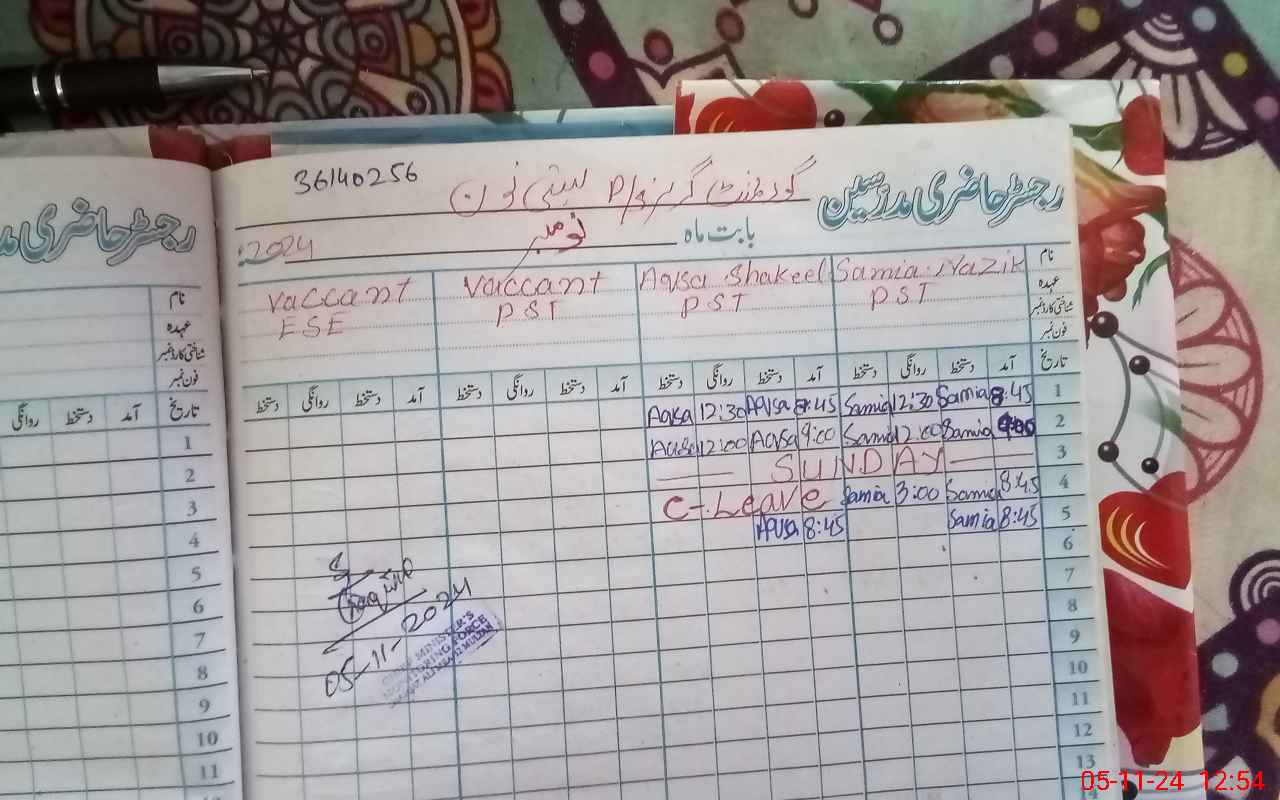 36140256
رجسٹر حاضری مدرسین
گورنمنٹ گرلز P/S
بابت ماہ نومبر 2024ء
نام Samia Nazik Aqsa Shakeel Vaccant Vaccant
عہدہ PST PST PST ESE
شناختی کارڈ نمبر
فون نمبر
تاریخ آمد دستخط روانگی دستخط آمد دستخط روانگی دستخط آمد دستخط روانگی دستخط آمد دستخط روانگی دستخط
1 8:45 Samia 12:30 Samia 8:45 Aqsa 12:30 Aqsa
2 9:00 Samia 12:00 Samia 9:00 Aqsa 12:00 Aqsa
3 SUNDAY
4 8:45 Samia 3:00 Samia C-Leave
5 8:45 Samia 8:45 Aqsa
6
7
8
9
10
11
12
13
14
05-11-2024
CHIEF MINISTER'S
MONITORING FORCE
رجسٹر حاضری مد
نام
عہدہ
شناختی کارڈ نمبر
فون نمبر
تاریخ آمد دستخط روانگی
1
2
3
4
5
6
7
8
9
10
11
05-11-24 12:54